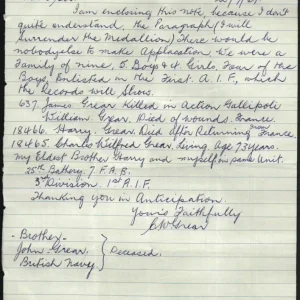 I am enclosing this note, because I don't
quite understand, the Paragraph (I will
surrender the Medallion) There would be
nobody else to make Application We were a
Family of nine, 5 Boys & 4 Girls. Four of the
Boys, Enlisted in the First. A.I.F, which
the Records will Show.
637 James Grear Killed in Action Gallipoli
William Grear. Died of wounds. France.
18466. Harry. Grear. Died after Returning from France
18465. Charles Wilfred Grear. Living Age 73 years.
My Eldest Brother Harry and myself in same Unit.
25th Battery. 7. F.A.B.
3rd Division. 1st A.I.F.
Thanking you in Anticipation
Yours Faithfully
CWGrear
Brother
John Grear. Deceased.
British Navy